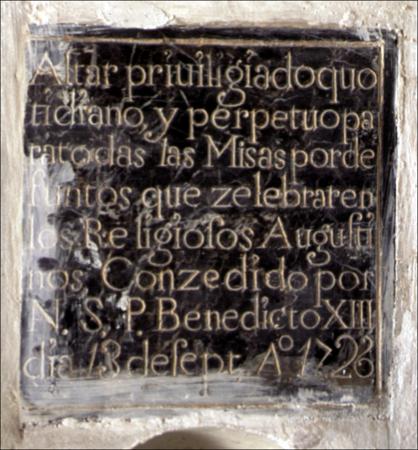 Altar priuiligiado quo
tidiano, y perpetuo pa
ra todas las Misas por de
funtos que zelebraren
los Religiosos Augusti
nos Conzedido por
N. S. P. Benedicto XIII
dia 13 de sept, Aº 1726